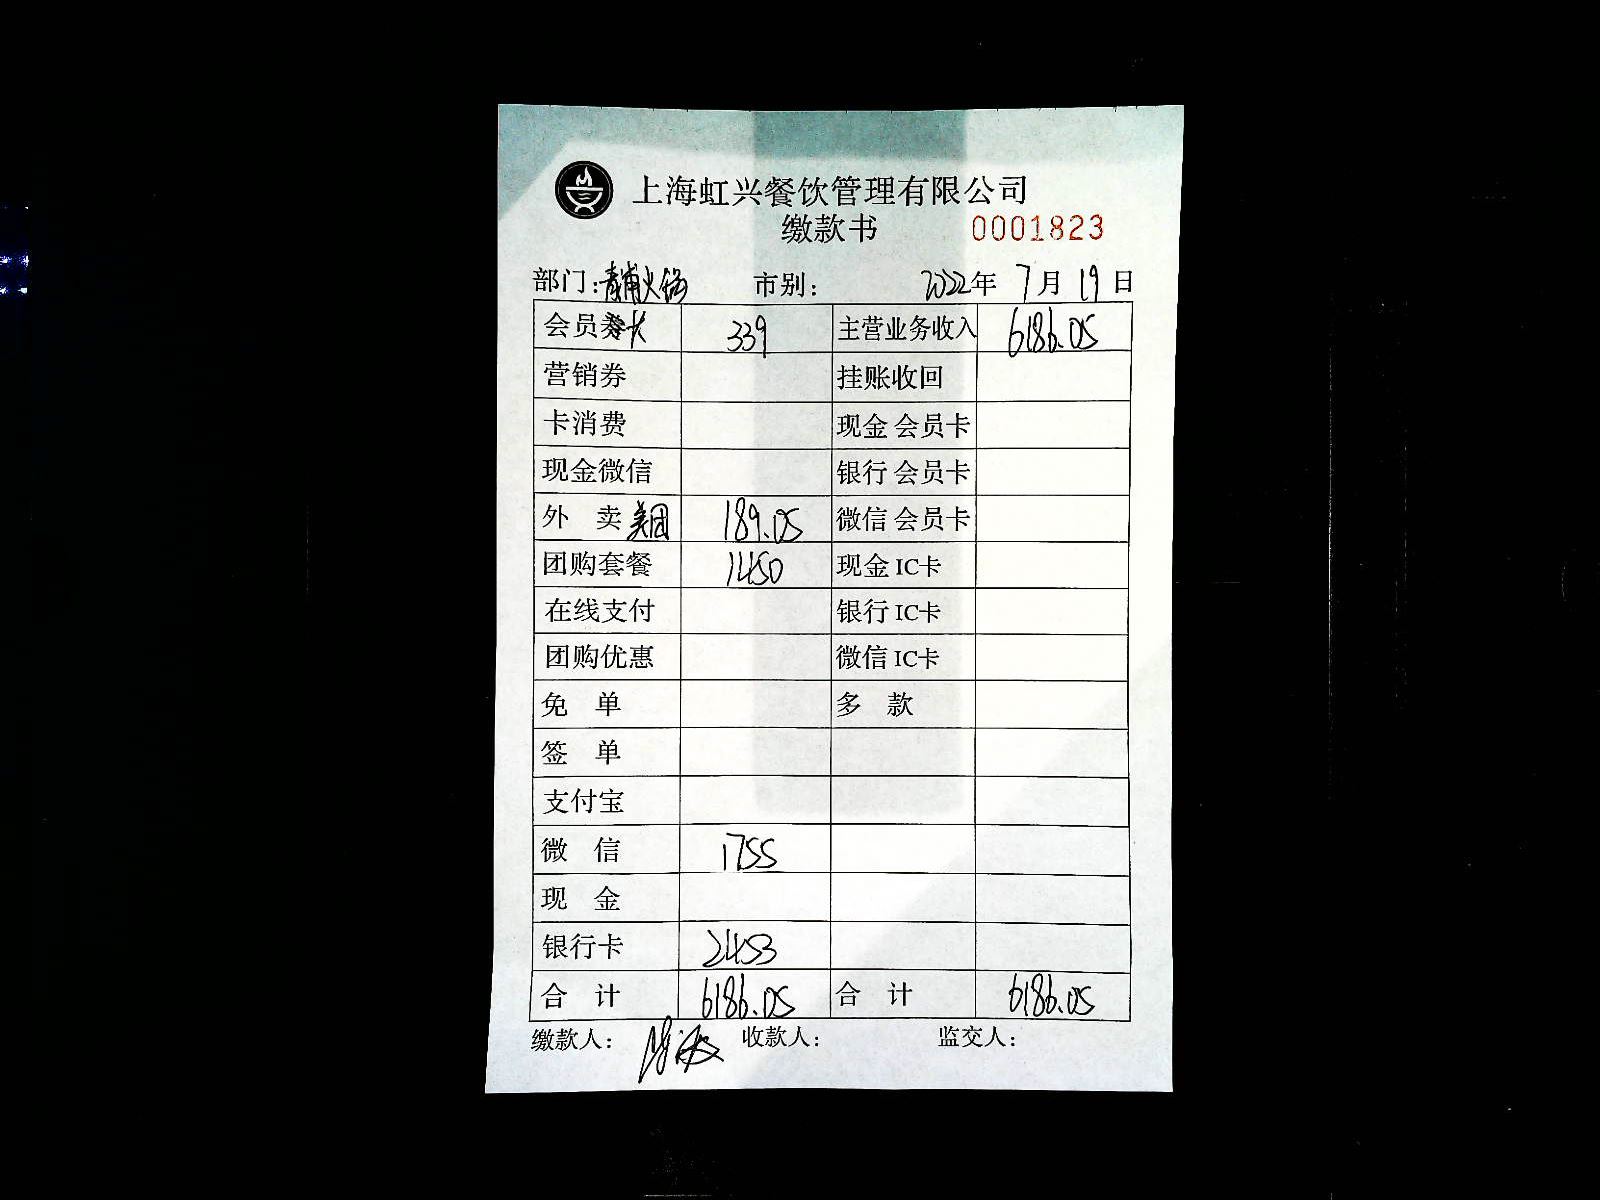 上海虹兴餐饮管理有限公司
缴款书 0001823
部门：青浦火锅 市别： 2022年 7月 19日
会员卡 339 主营业务收入 6186.05
营销券 挂账收回
卡消费 现金会员卡
现金微信 银行会员卡
外卖美团 189.05 微信会员卡
团购套餐 1450 现金IC卡
在线支付 银行IC卡
团购优惠 微信IC卡
免单 多款
签单
支付宝
微信 1755
现金
银行卡 2453
合计 6186.05 合计 6186.05
缴款人： 收款人： 监交人：